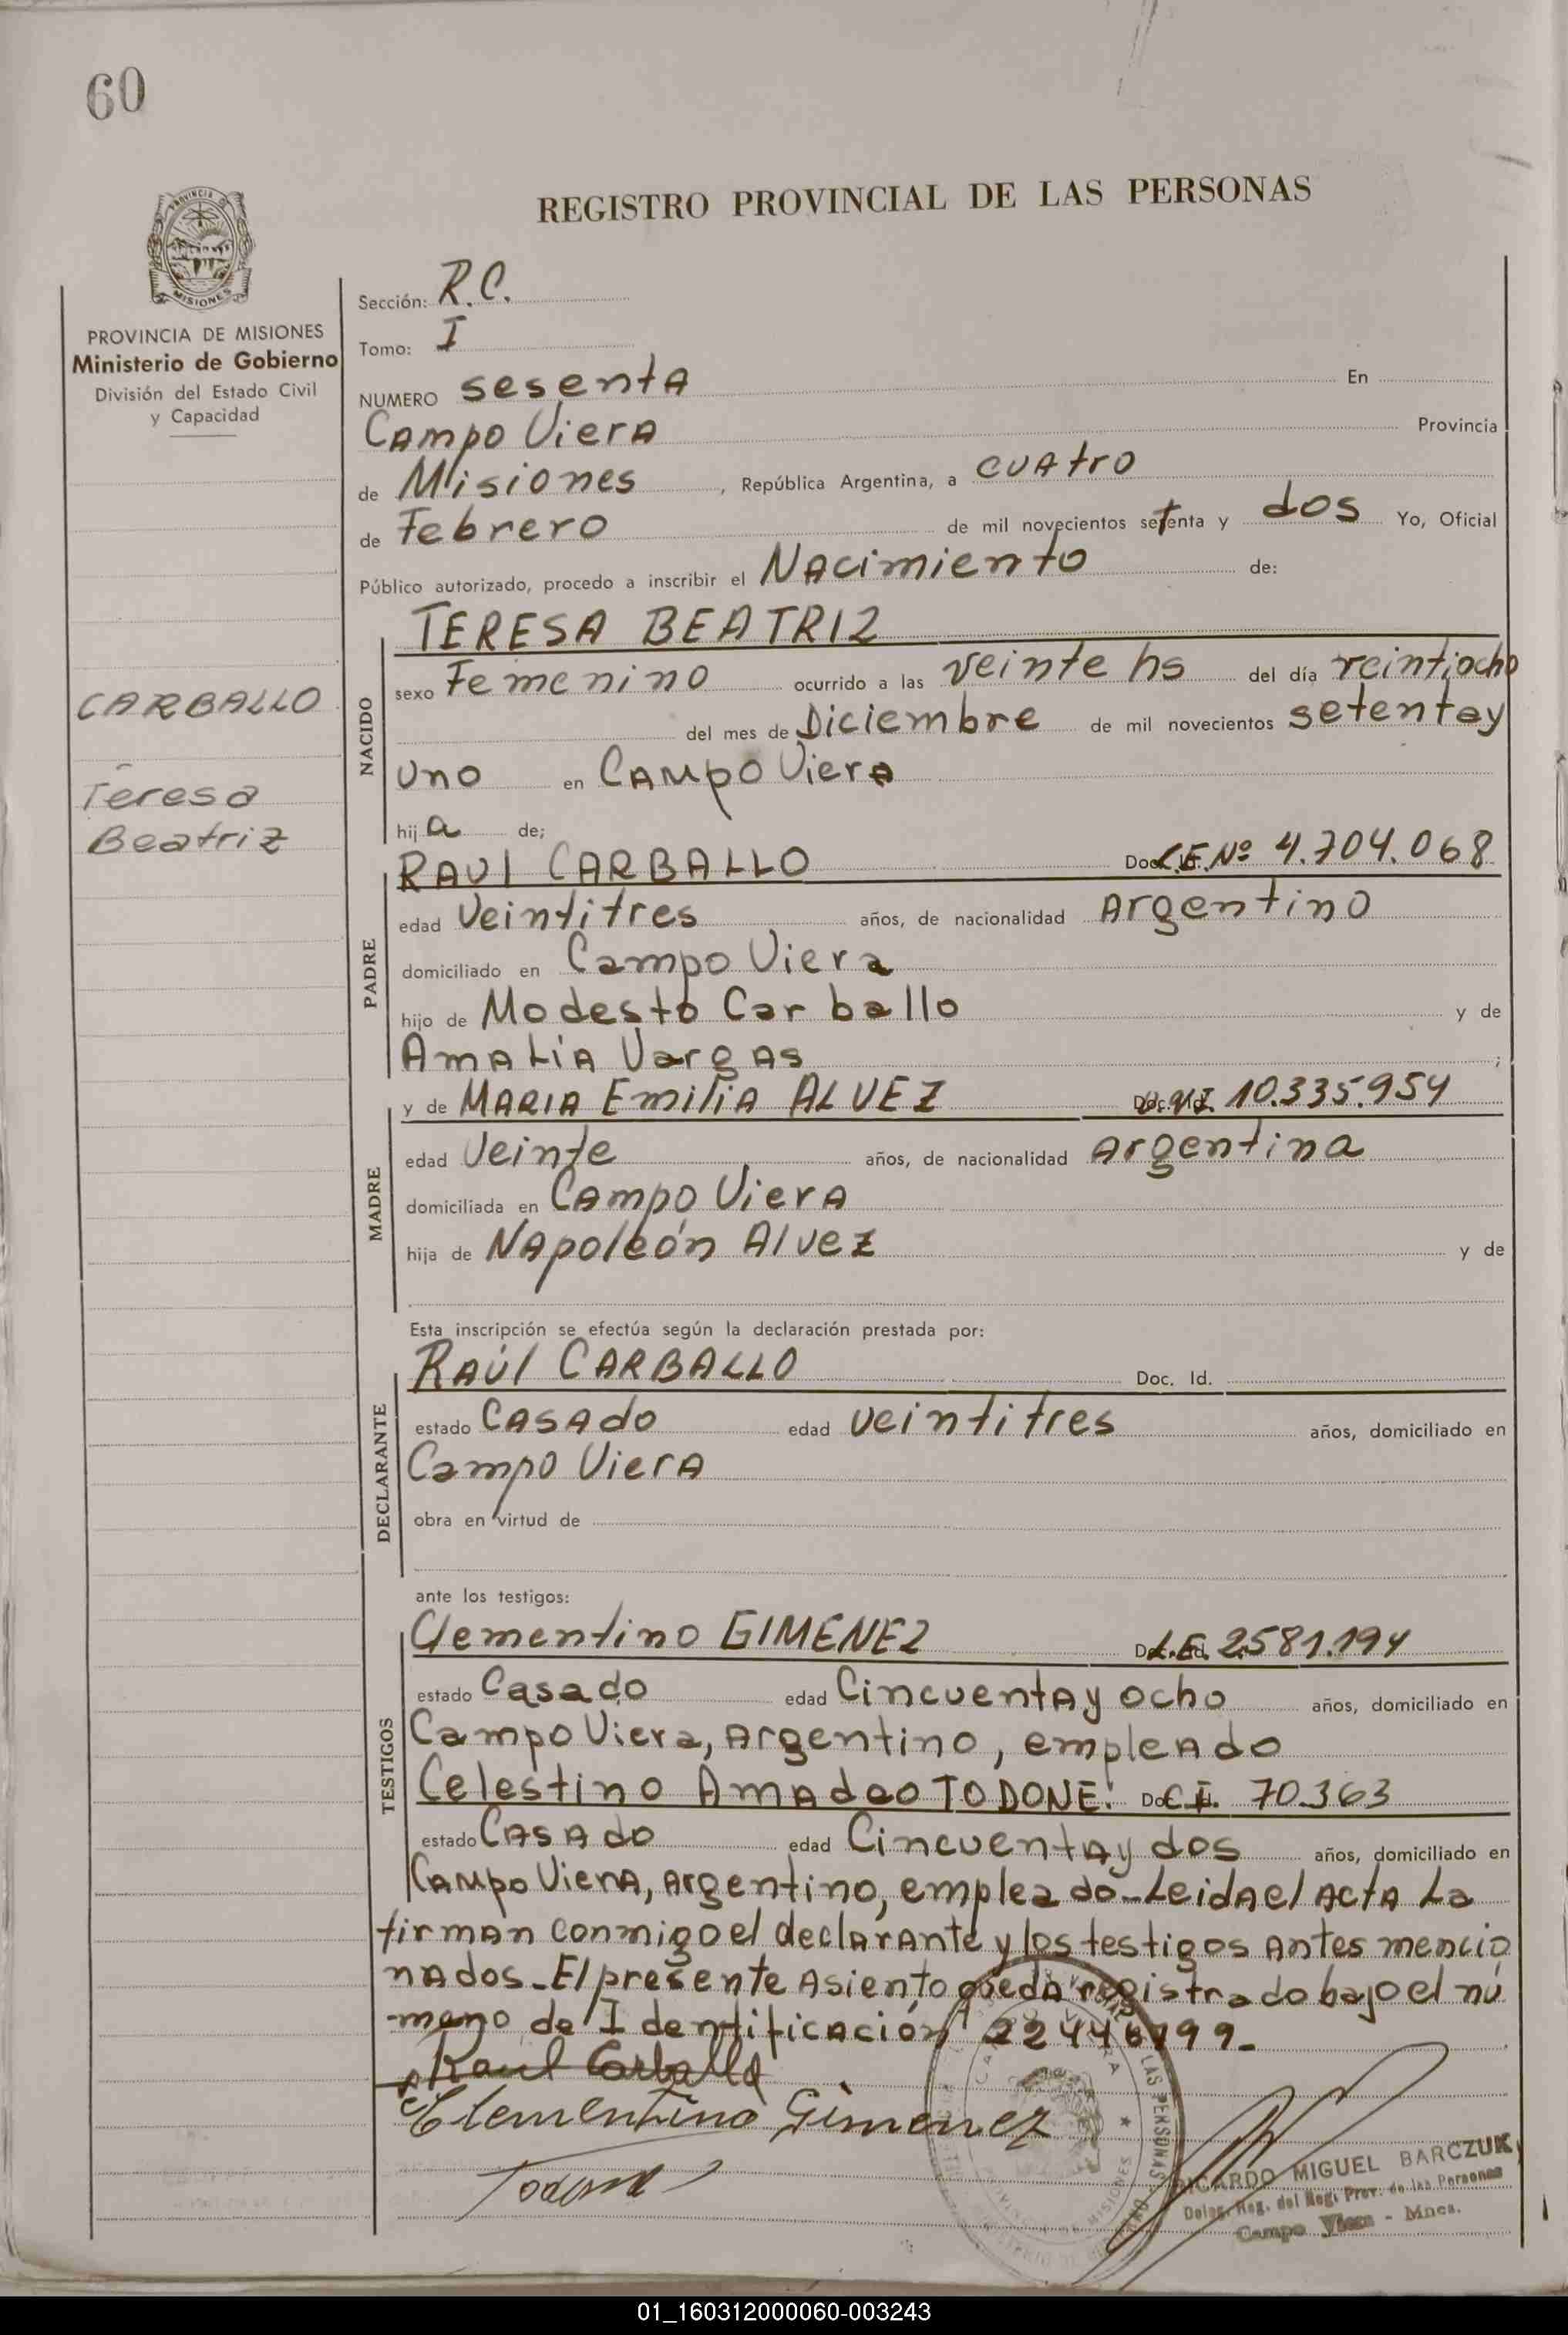 60
PROVINCIA DE
MISIONES
REGISTRO PROVINCIAL DE LAS PERSONAS
PROVINCIA DE MISIONES
Ministerio de Gobierno
División del Estado Civil
y Capacidad
CARBALLO
Teresa
Beatriz
Sección: R.C.
Tomo: I
NUMERO sesentA En
CAmpo VierA Provincia
de Misiones, República Argentina, a cuAtro
de Febrero de mil novecientos setenta y dos Yo, Oficial
Público autorizado, procedo a inscribir el NAcimiento de:
NACIDO
TERESA BEATRIZ
sexo Femenino ocurrido a las veinte hs del día veintiocho
del mes de Diciembre de mil novecientos setentay
uno en CAmpo Viera
hija de;
PADRE
RAUl CARBALLO Doc. L.E. Nº 4.704.068
edad Veintitres años, de nacionalidad Argentino
domiciliado en Campo Viera
hijo de Modesto Carballo y de
AmaLiA VargAs ;
MADRE
y de MARIA EmiliA ALVEZ Doc. Id. 10.335.954
edad Veinte años, de nacionalidad Argentina
domiciliada en CAmpo VierA
hija de NApoleón Alvez y de
Esta inscripción se efectúa según la declaración prestada por:
DECLARANTE
RAúl CARBALLO Doc. Id.
estado CASAdo edad veintitres años, domiciliado en
Campo VierA
obra en virtud de
ante los testigos:
TESTIGOS
Clementino GIMENEZ L.E. 2.581.194
estado Casado edad CincuentAy ocho años, domiciliado en
Campo Viera, Argentino, empleAdo
Celestino AmAdeo TODONE. C.I. 70.363
estado CASAdo edad CincuentAy dos años, domiciliado en
CAmpo VierA, Argentino, empleado-LeidAel ActA La
firman conmigo el declarAnte y los testigos Antes mencio
nAdos-El presente Asiento quedA registrado bajo el nú
mero de Identificación 22446799-
Raul Carballo
Clementino Gimenez
Todone
LAS PERSONAS
RICARDO MIGUEL BARCZUK
Deleg. Reg. del Reg. Prov. de las Personas
Campo Viera - Mnes.
01_160312000060-003243